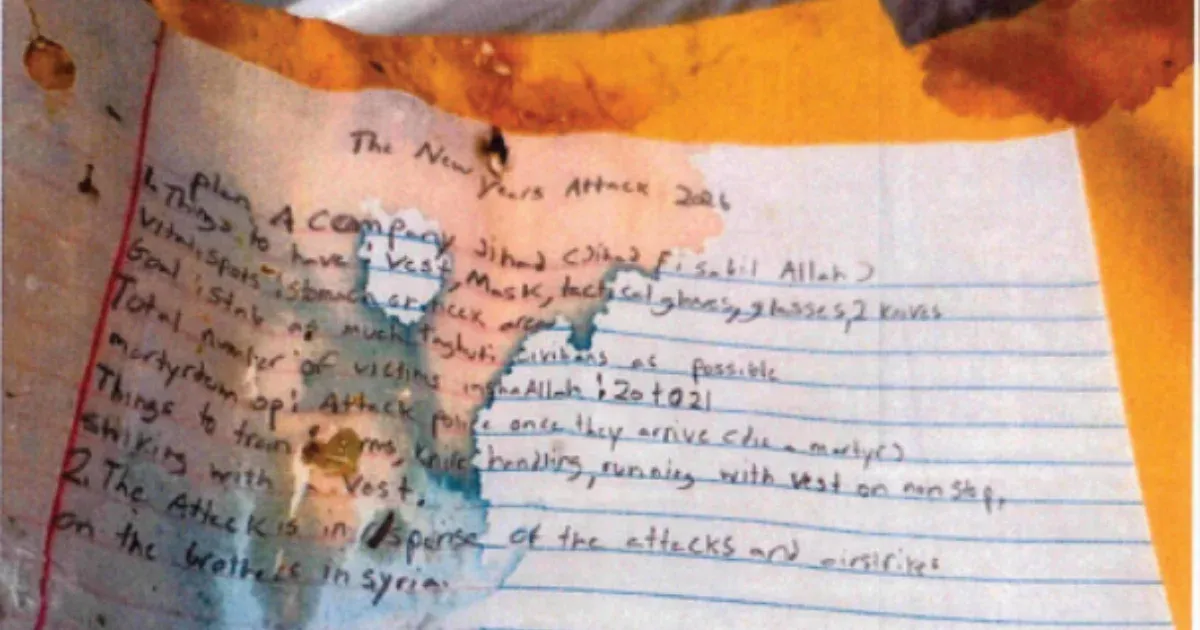 The New Years Attack 2026
Plan A Company Jihad (Jihad fi sabil Allah)
1. Things to have: vest, Mask, tactical gloves, glasses, 2 knives
Vital spots: stomach or neck area
Goal: stab as much taghuti civilians as possible
Total number of victims inshaAllah: 20 to 21
martyrdom op: Attack police once they arrive (die a martyr)
Things to train: Arms, knife handling, running with vest on non stop,
striking with a vest.
2. The Attack is in sponse of the attacks and airstrikes
on the brothers in syria.